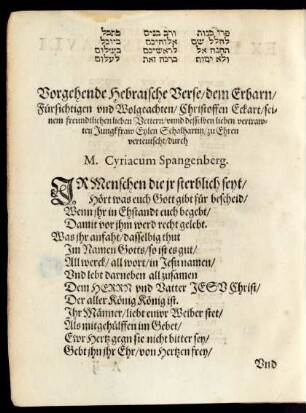 פרי בנות ורך בנים כתמל
להלל שם אלוהיכם ביובל
התבה אל לראשיכם בשלום
ולא ימוח ברכה זאת לעלום
Vorgehende Hebraische Verse/dem Erbarn/
Fürsichtigen vnd Wolgeachten/Christoffen Eckart/sei-
nem freundtlichen lieben Vettern/vnnd desselben lieben vertraw-
ten Jungkfraw Eylen Schalhartin/zu Ehren
verteutscht/durch
M. Cyriacum Spangenberg.
IR Menschen die jr sterblich seyt/
Hört was euch Gott gibt für bescheid/
Wenn jhr in Ehstandt euch begebt/
Damit vor jhm werd recht gelebt.
Was jhr anfaht/dasselbig thut
Im Namen Gotts/so ist es gut/
All werck/all wort/in Jesu namen/
Vnd lebt darneben all zusamen
Dem HERRN vnd Vatter JESV Christ/
Der aller König König ist.
Ihr Männer/liebt ewre Weiber stet/
Als mitgehülffen im Gebet/
Ewr Hertz gegn sie nicht bitter sey/
Gebt jhn jhr Ehr/von Hertzen frey/
Vnd